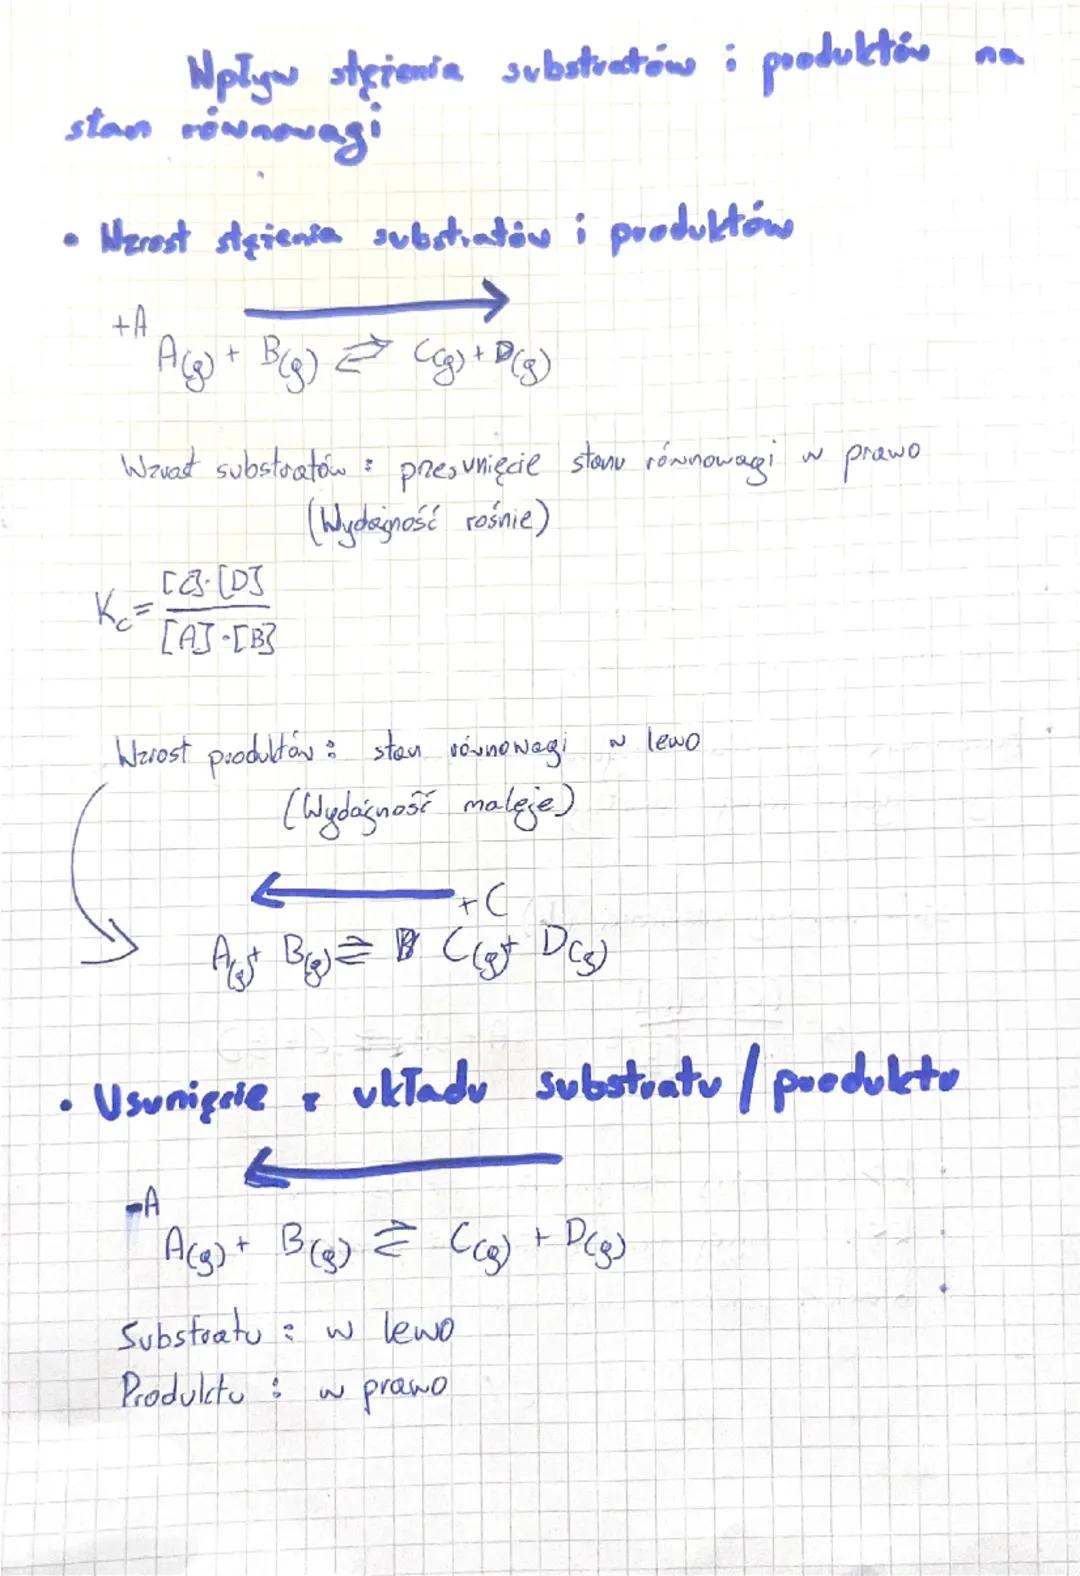 Wpływ stężenia substratów i produktów na
stan równowagi
• Wzrost stężenia substratów i produktów
+A
A(g) + B(g) ⇄ C(g) + D(g)
Wzrost substratów : przesunięcie stanu równowagi w prawo
(Wydajność rośnie)
Kc = [C]·[D] / [A]·[B]
Wzrost produktów : stan równowagi w lewo
(Wydajność maleje)
+C
A(g) + B(g) ⇄ C(g) + D(g)
• Usunięcie z układu substratu / produktu
-A
A(g) + B(g) ⇄ C(g) + D(g)
Substratu : w lewo
Produktu : w prawo